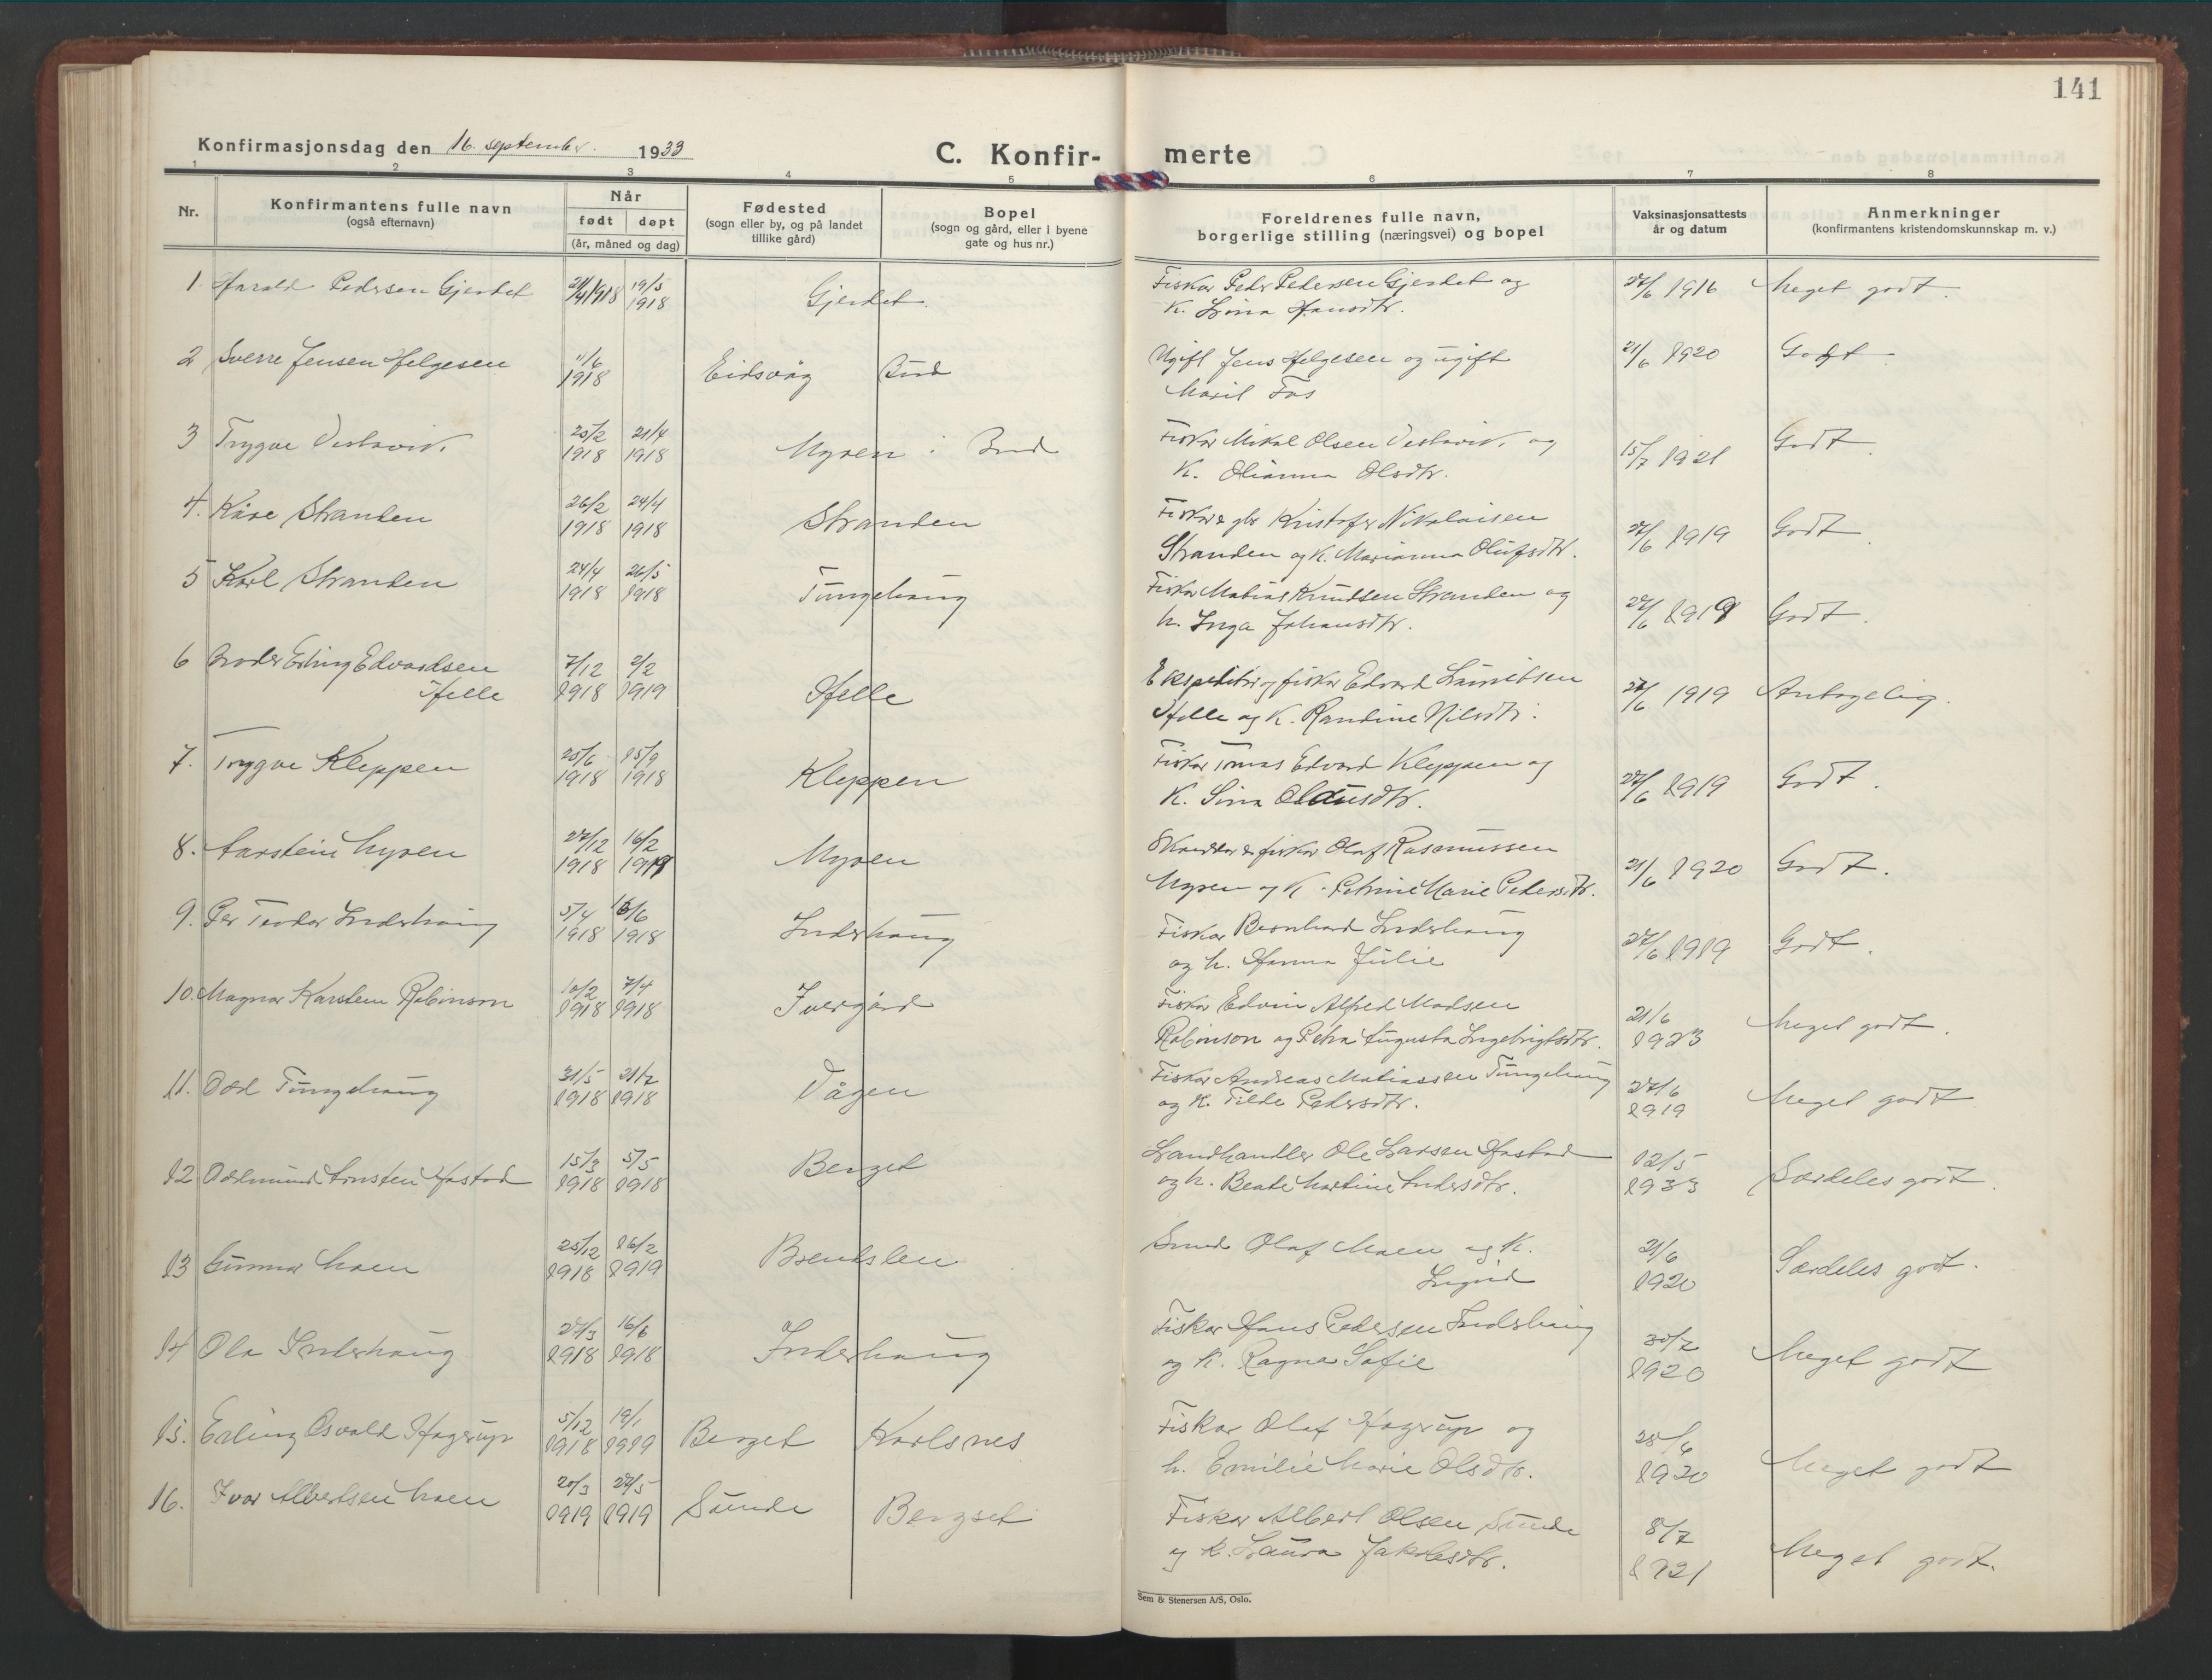 141
Konfirmasjonsdag den 16. september. 1933
C. Konfir- merte
1 2 3 4 5 6 7 8
Nr.
Konfirmantens fulle navn
(også efternavn)
Når
født døpt
(år, måned og dag)
Fødested
(sogn eller by, og på landet
tillike gård)
Bopel
(sogn og gård, eller i byene
gate og hus nr.)
Foreldrenes fulle navn,
borgerlige stilling (næringsvei) og bopel
Vaksinasjonsattests
år og datum
Anmerkninger
(konfirmantens kristendomskunnskap m. v.)
1. Harald Pedersen Gjerdet 19/5 1918 Gjerdet.
Fisker Peder Pedersen Gjerdet og
K. Lina Hansdtr.
27/6 1916 Meget godt.
2 Sverre Jensen Helgesen 11/6 1918 Eidsvåg Bud
Ugift Jens Helgesen og ugift
Marit Fos
21/6 1920 Godt
3 Trygve Vestavik. 25/2 1918 21/4 1918 Myren i Bud
Fisker Mikal Olsen Vestavik. og
K. Olianna Olsdtr.
15/7 1921 Godt.
4. Kåre Stranden 26/2 1918 24/4 1918 Stranden
Fisker & gbr Kristofer Nikolaisen
Stranden og K. Marianna Olufsdtr.
27/6 1919 Godt.
5 Karl Stranden 24/4 1918 26/5 1918 Tungehaug
Fisker Matias Knudsen Stranden og
h. Inga Johansdtr.
27/6 1919 Godt.
6 Broder Erling Edvardsen
Helle
7/12 1918 2/2 1919 Helle
Ekspeditør og fisker Edvard Lauritsen
Helle og K. Randine Nilsdtr.
27/6 1919 Antagelig.
7. Trygve Kleppen 25/6 1918 15/9 1918 Kleppen
Fisker Tomas Edvard Kleppen og
K. Sina Olausdtr.
27/6 1919 Godt.
8. Aarstein Myren 27/12 1918 16/2 1919 Myren
fisker Olaf Rasmussen
Myren og K. Petrine Marie Pedersdtr.
21/6 1920 Godt.
9. Per Teodor Inderhaug 5/4 1918 16/6 1918 Inderhaug
Fisker Bernhard Inderhaug
og h. Hanna Julie
27/6 1919 Godt.
10. Magnar Karsten Robinson 10/2 1918 7/4 1918 Ivergård
Fisker Edvin Alfred Madsen
Robinson og Petra Augusta Ingebrigtsdtr.
21/6
1923 Meget godt.
11. Odd Tungehaug 31/5 1918 21/7 1918 Vågen
Fisker Andreas Matiassen Tungehaug
og K. Tilda Pedersdtr.
27/6
1919 Meget godt
12 Oddmund Arnsten Hostad 15/3 1918 5/5 1918 Berget
Landhandler Ole Larsen Hostad
og h. Beate Martine Andersdtr.
12/5
1933 Særdeles godt.
13 Gunnar Moen 25/12 1918 16/2 1919
Smed Olaf Moen og K.
Ingrid
21/6
1920 Særdeles godt.
14 Ola Inderhaug 27/3 1918 16/6 1918 Inderhaug
Fisker Hans Pedersen Inderhaug
og K. Ragna Sofie
30/7
1920 Meget godt
15. Erling Osvald Hagerup 5/12 1918 19/1 1919 Berget Karlsnes
Fisker Olaf Hagerup og
h. Emilie Marie Olsdtr.
28/6
1920 Meget godt
16. Ivar Albertsen Moen 20/3 1919 27/5 1919 Sunde Bergset
Fisker Albert Olsen Sunde
og K. Laura Jakobsdtr.
8/7
1921 Meget godt.
Sem & Stenersen A/S, Oslo.